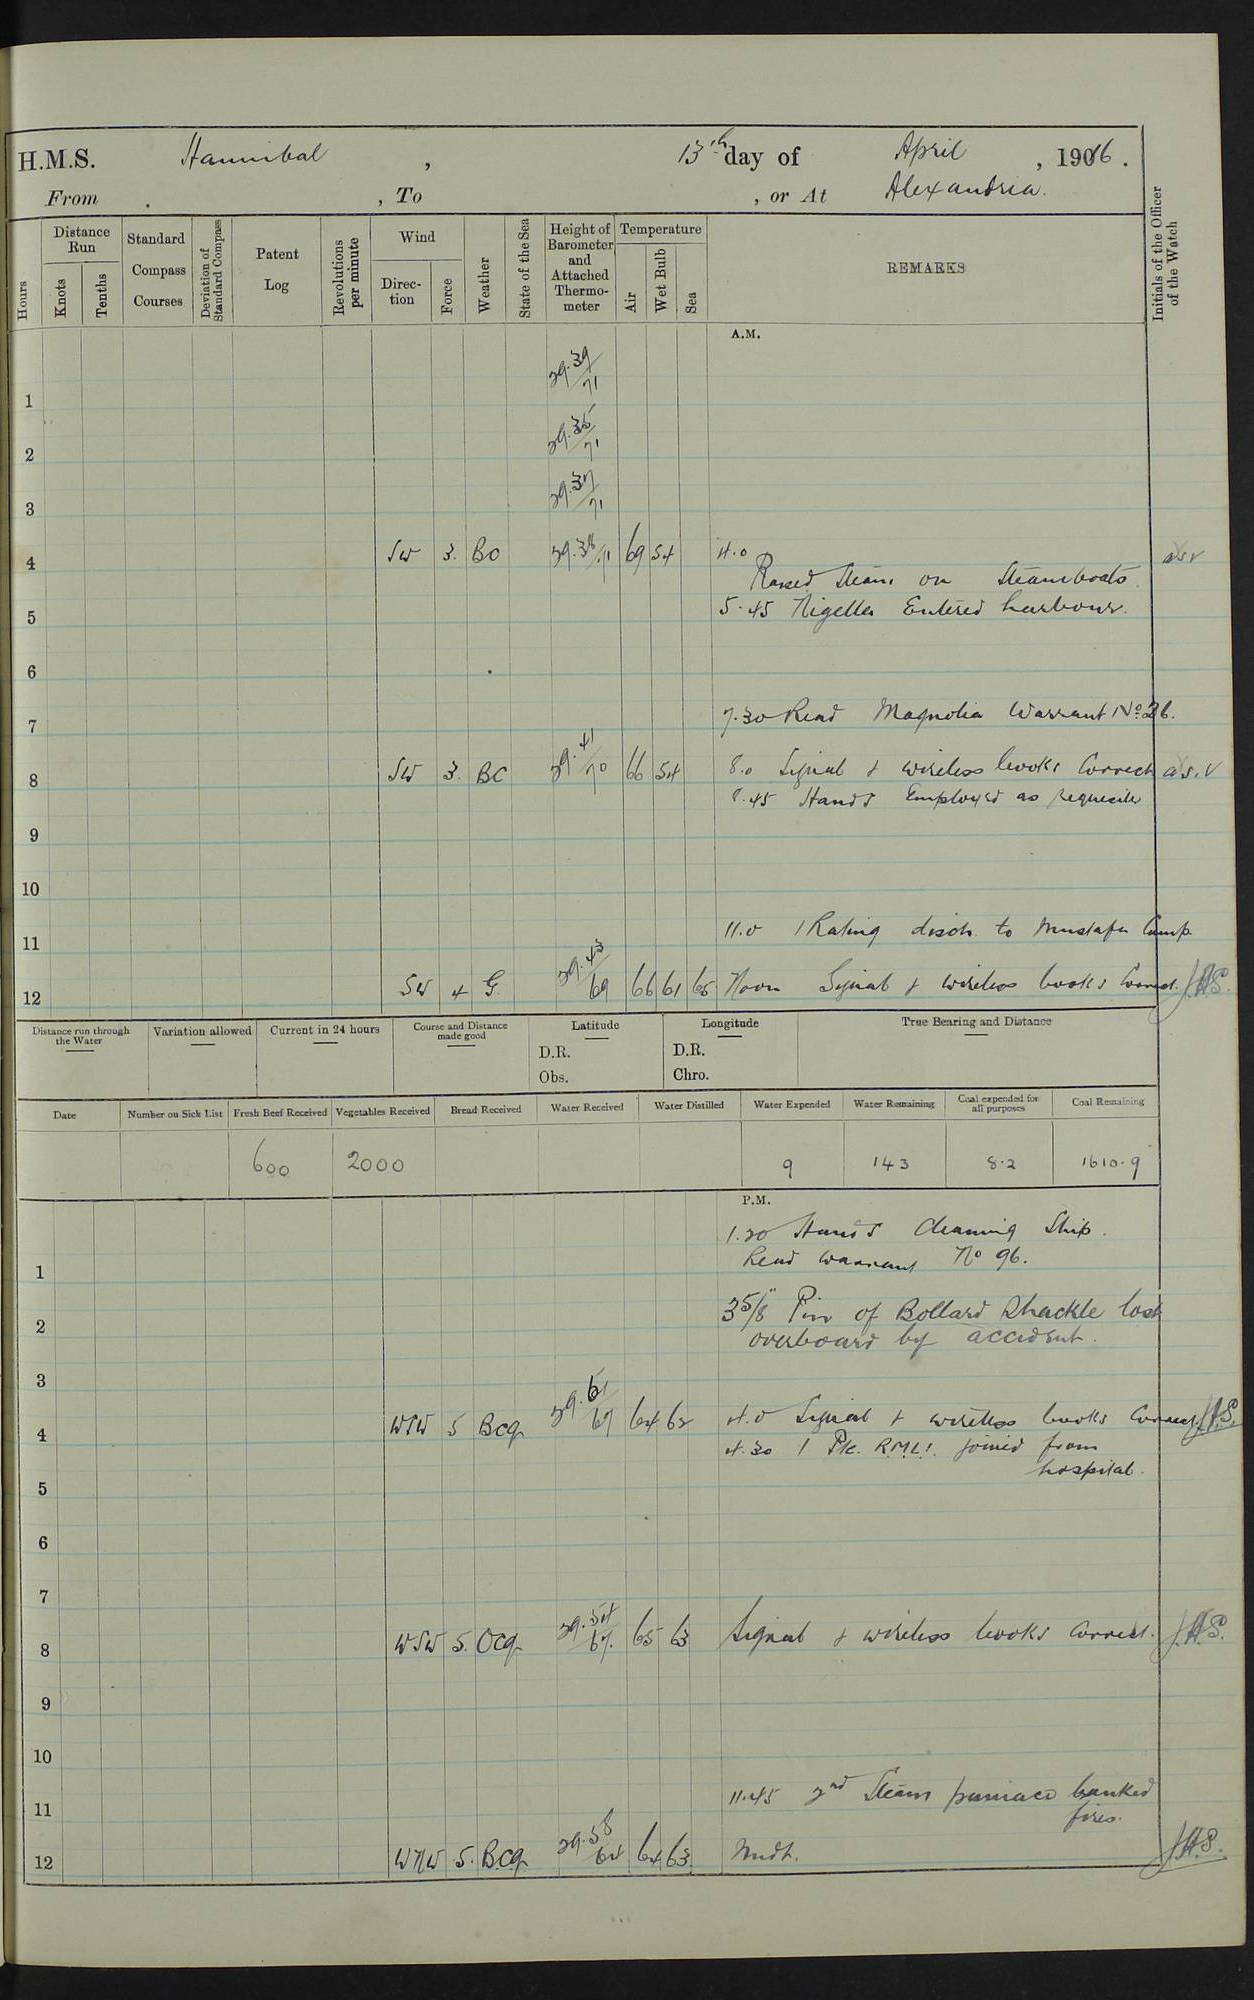 H.M.S. Hannibal , 13th day of April , 1916.
From , To , or At Alexandria.
Hours
Distance Run
Knots
Tenths
Standard Compass Courses
Deviation of Standard Compass
Patent Log
Revolutions per minute
Wind
Direction
Force
Weather
State of the Sea
Height of Barometer and Attached Thermometer
Temperature
Air
Wet Bulb
Sea
REMARKS
Initials of the Officer of the Watch
A.M.
1 29.39/71
2 29.35/71
3 29.37/71
4 SW 3. BC 29.38/71 69 54 4.0
Raised Steam on Steamboats.
5 5.45 Nigella Entered harbour.
6
7 7.30 Read Magnolia Warrant No 26.
8 SW 3. BC 29.41/70 66 54 8.0 Signal & wireless books Correct
8.45 Hands Employed as requisite
9
10
11 11.0 1 Rating disch. to Mustafa Camp
12 SW 4 G. 29.43/69 66 61 65 Noon Signal & wireless books Correct. J.H.S.
Distance run through the Water
Variation allowed
Current in 24 hours
Course and Distance made good
Latitude
D.R.
Obs.
Longitude
D.R.
Chro.
True Bearing and Distance
Date Number on Sick List Fresh Beef Received Vegetables Received Bread Received Water Received Water Distilled Water Expended Water Remaining Coal expended for all purposes Coal Remaining
600 2000 9 143 8.2 1610.9
P.M.
1.20 Hands Cleaning Ship.
1 Read warrant No 96.
2 3 5/8" Pin of Bollard Shackle lost
overboard by accident.
3
4 WSW 5 Bcq 29.51/67 64 62 4.0 Signal & wireless books Correct. J.H.S.
4.30 1 Pte. R.M.L.I. joined from
hospital.
5
6
7
8 WSW 5. Ocq 29.54/67. 65 63 Signal & wireless books Correct. J.H.S.
9
10
11 11.45 2nd Steam pinnace banked
fires.
12 WNW 5. B.cq 29.58/64 64 63 Midt. J.H.S.